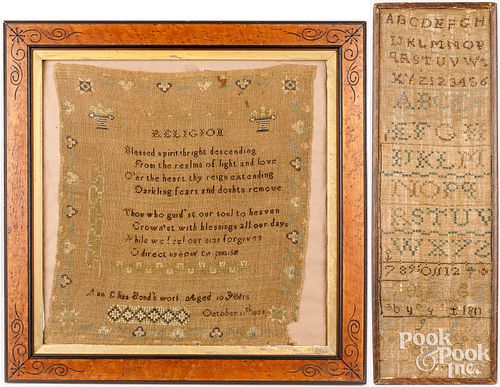 RELIGION
Blessed spirit bright descending
From the realms of light and love
O'er the heart thy reign extending
Darkling fears and doubts remove
Thou who guid'st our soul to heaven
Crown'st with blessings all our days
While we feel our sins forgiven
O direct us how to praise
Ann Eliza Bond's work Aged 10 Years
October 11th
ABCDEFGH
IJKLMNOP
QRSTUVW
XYZ123456
ABCD
EFGH
IJKLM
NOPQ
RSTUV
WXYZ
789101112
Pook & Pook Inc.